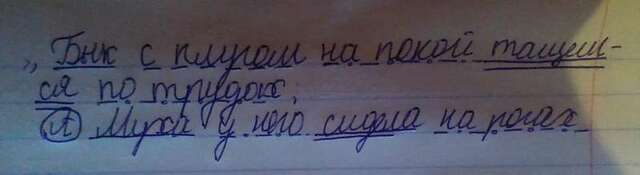 „Бык с плугом на покой тащил-
ся по трудах,
А Муха у него сидела на рогах